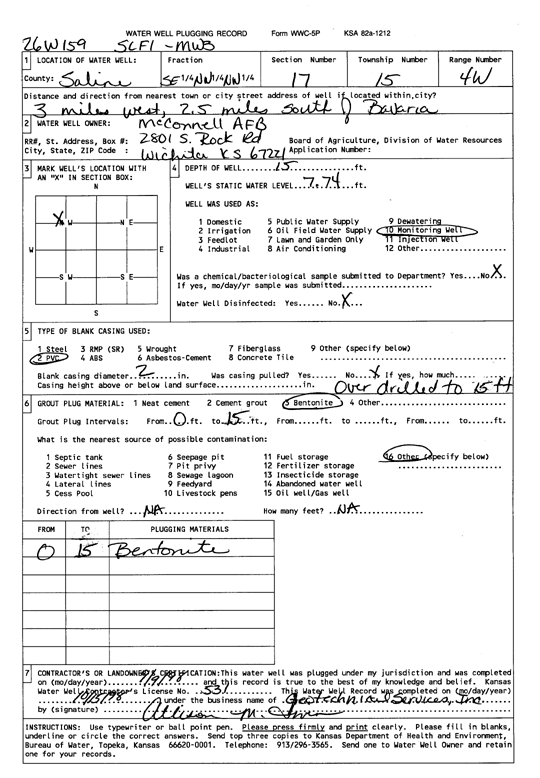 WATER WELL PLUGGING RECORD Form WWC-5P KSA 82a-1212
26W159 SLF1 -MW3
1 LOCATION OF WATER WELL: Fraction Section Number Township Number Range Number
County: Saline SE 1/4 NW 1/4 NW 1/4 17 15 4W
Distance and direction from nearest town or city street address of well if located within city?
3 miles west, 2.5 miles south of Bavaria
2 WATER WELL OWNER: McConnell AFB
RR#, St. Address, Box #: 2801 S. Rock Rd Board of Agriculture, Division of Water Resources
City, State, ZIP Code : Wichita KS 67221 Application Number:
3 MARK WELL'S LOCATION WITH AN "X" IN SECTION BOX:
N
X W N E
W E
S W S E
S
4 DEPTH OF WELL.....15.....ft.
WELL'S STATIC WATER LEVEL..7.74...ft.
WELL WAS USED AS:
1 Domestic 5 Public Water Supply 9 Dewatering
2 Irrigation 6 Oil Field Water Supply 10 Monitoring Well
3 Feedlot 7 Lawn and Garden Only 11 Injection Well
4 Industrial 8 Air Conditioning 12 Other..............
Was a chemical/bacteriological sample submitted to Department? Yes....No.X.
If yes, mo/day/yr sample was submitted....................
Water Well Disinfected: Yes...... No.X...
5 TYPE OF BLANK CASING USED:
1 Steel 3 RMP (SR) 5 Wrought 7 Fiberglass 9 Other (specify below)
2 PVC 4 ABS 6 Asbestos-Cement 8 Concrete Tile ............................
Blank casing diameter..2......in. Was casing pulled? Yes...... No..X. If yes, how much......
Casing height above or below land surface.................in. Over drilled to 15 ft
6 GROUT PLUG MATERIAL: 1 Neat cement 2 Cement grout 3 Bentonite 4 Other......................
Grout Plug Intervals: From..0.ft. to.15.ft., From......ft. to ......ft., From...... to......ft.
What is the nearest source of possible contamination:
1 Septic tank 6 Seepage pit 11 Fuel storage 16 Other (specify below)
2 Sewer lines 7 Pit privy 12 Fertilizer storage ......................
3 Watertight sewer lines 8 Sewage lagoon 13 Insecticide storage
4 Lateral lines 9 Feedyard 14 Abandoned water well
5 Cess Pool 10 Livestock pens 15 Oil well/Gas well
Direction from well? ...NA.............. How many feet? ..NA..............
FROM TO PLUGGING MATERIALS
0 15 Bentonite
7 CONTRACTOR'S OR LANDOWNER'S CERTIFICATION:This water well was plugged under my jurisdiction and was completed
on (mo/day/year)........ and this record is true to the best of my knowledge and belief. Kansas
Water Well Contractor's License No. ..531...... This Water Well Record was completed on (mo/day/year)
under the business name of Geotechnical Services, Inc.
by (signature) Allison M.
INSTRUCTIONS: Use typewriter or ball point pen. Please press firmly and print clearly. Please fill in blanks,
underline or circle the correct answers. Send top three copies to Kansas Department of Health and Environment,
Bureau of Water, Topeka, Kansas 66620-0001. Telephone: 913/296-3565. Send one to Water Well Owner and retain
one for your records.